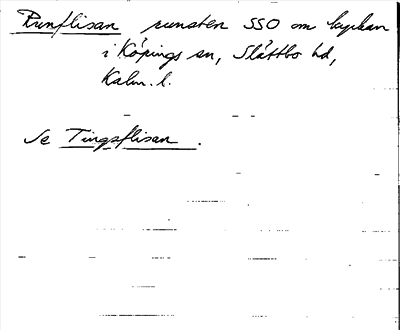 Runflisan runsten SSO om kyrkan
i Köpings sn, Slättbo hd,
Kalm. l.
Se Tingsflisan.